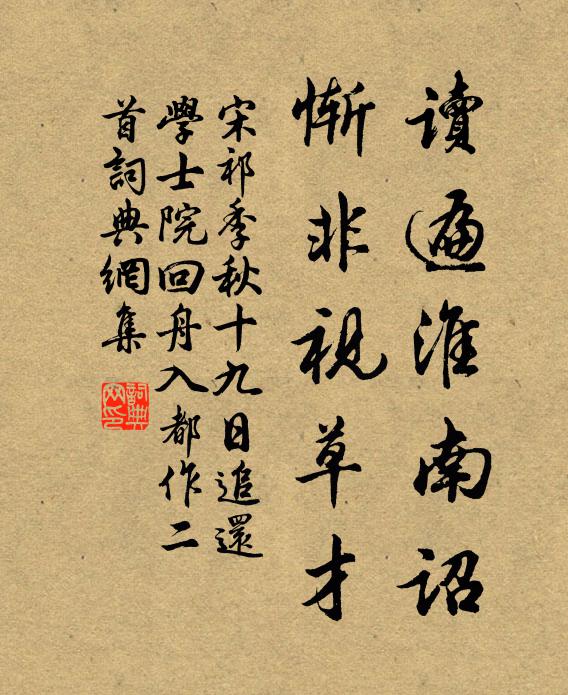 讀遍淮南詔
慚非視草才
宋祁季秋十九日追還
學士院回舟入都作二
首詞典網集
詞典网印